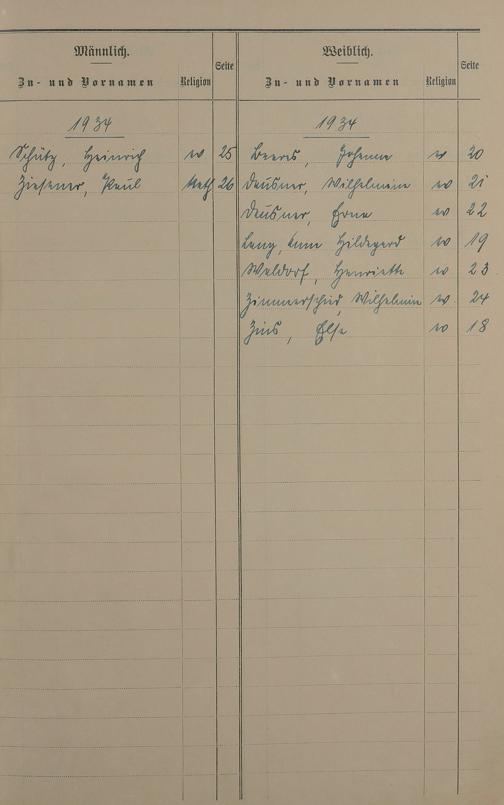 Männlich.
Zu- und Vornamen Religion Seite
1934
Schütz, Heinrich ev 25
Ziesemer, Paul Kath 26
Weiblich.
Zu- und Vornamen Religion Seite
1934
Beeres, Johanna ev 20
Deusner, Wilhelmine ev 21
Deusner, Erna ev 22
Lang, Anna Hildegard ev 19
Waldorf, Henriette ev 23
Zimmerschied, Wilhelmine ev. 24
Zins, Else ev 18